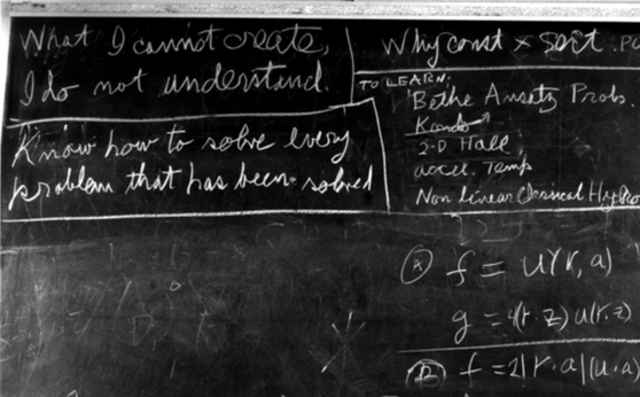 What I cannot create,
I do not understand.
Know how to solve every
problem that has been solved
Why const × sort . PO
TO LEARN:
Bethe Ansatz Probs.
Kondo
2-D Hall
accel. Temp
Non linear Classical Hydro
Ⓐ f = u(r, a)
g = 4(r·z) u(r, z)
Ⓑ f = 2|r·a|(u·a)